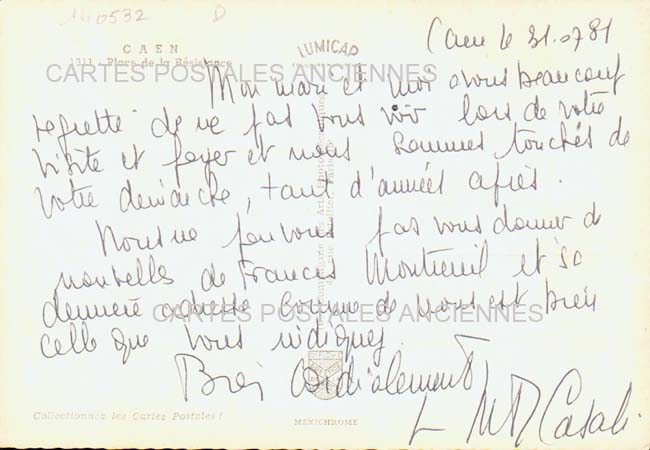 140532 D
CAEN
1311 - Place de la Résistance
LUMICAP
CARTES POSTALES ANCIENNES
Caen le 31.07 81
Mon mari et moi avons beaucoup
regretté de ne pas vous voir lors de votre
visite et foyer et nous sommes touchés de
votre démarche, tant d'années après.
Nous ne pouvons pas vous donner de
nouvelles de Francis Montreuil et sa
dernière adresse connue de nous est bien
CARTES POSTALES ANCIENNES
celle que vous indiquez.
Bien Cordialement
Casali
Collectionnez les Cartes Postales !
MEXICHROME